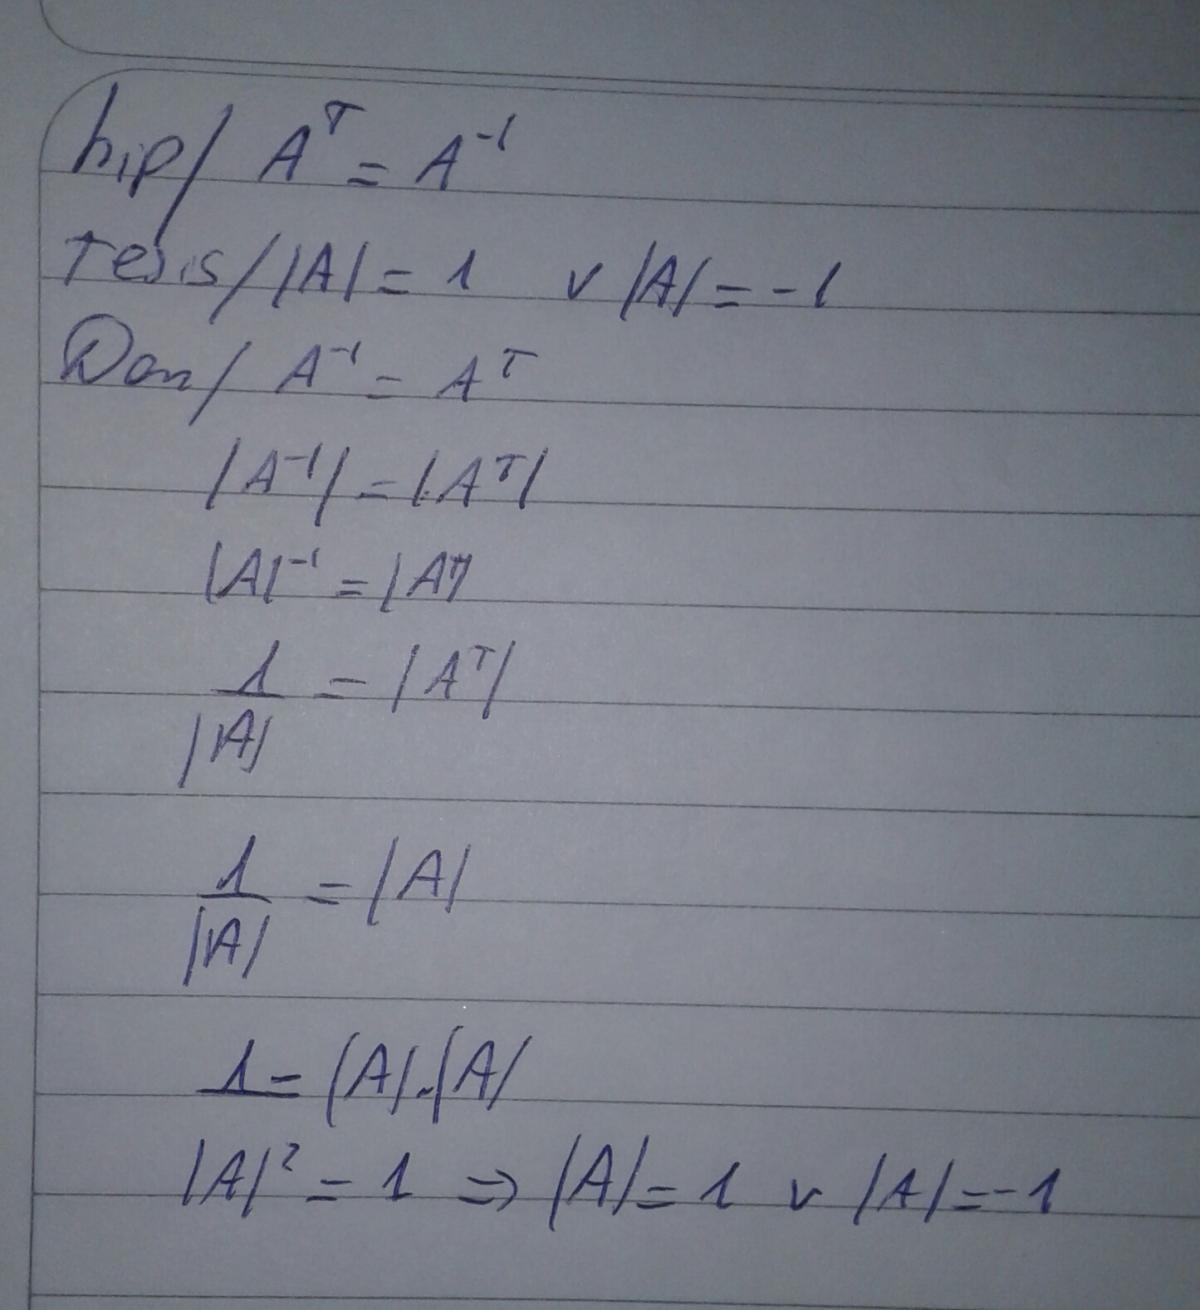 hip/ Aᵀ = A⁻¹
Tesis/ |A| = 1 v |A| = -1
Dem/ A⁻¹ = Aᵀ
|A⁻¹| = |Aᵀ|
|A|⁻¹ = |Aᵀ|
1/|A| = |Aᵀ|
1/|A| = |A|
1 = |A|.|A|
|A|² = 1 => |A| = 1 v |A| = -1